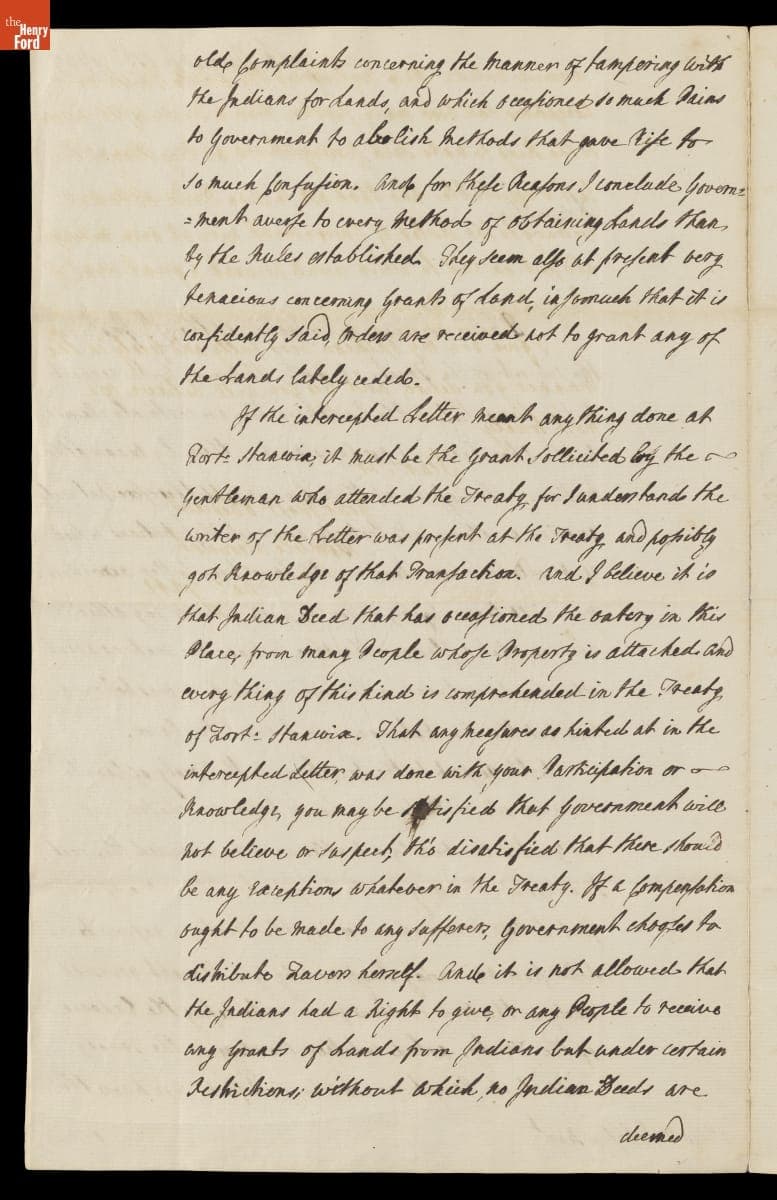 the
Henry
Ford
old Complaints concerning the manner of tampering with
the Indians for Lands, and which occasioned so much Pains
to Government to abolish Methods that gave Rise to
so much Confusion. And for these Reasons I conclude Govern=
=ment averse to every Method of obtaining Lands than
by the Rules established. They seem also at present very
tenacious concerning Grants of Land, insomuch that it is
confidently said, Orders are received not to grant any of
the Lands lately ceded.
If the intercepted Letter meant any thing done at
Fort: Stanwix, it must be the Grant sollicited by the
Gentleman who attended the Treaty, for I understand the
writer of the Letter was present at the Treaty, and possibly
got Knowledge of that Transaction. And I believe it is
that Indian Deed that has occasioned the outcry in this
Place, from many People whose Property is attached, and
every thing of this kind is comprehended in the Treaty
of Fort: Stanwix. That any measures as hinted at in the
intercepted Letter, was done with your Participation or
Knowledge, you may be satisfied that Government will
not believe or suspect, tho' disatisfied that there should
be any Exceptions whatever in the Treaty. If a Compensation
ought to be made to any sufferers, Government chooses to
distribute Favors herself. And it is not allowed that
the Indians had a Right to give, or any People to receive
any Grants of Lands from Indians but under certain
Restrictions; without which, no Indian Deeds are
deemed